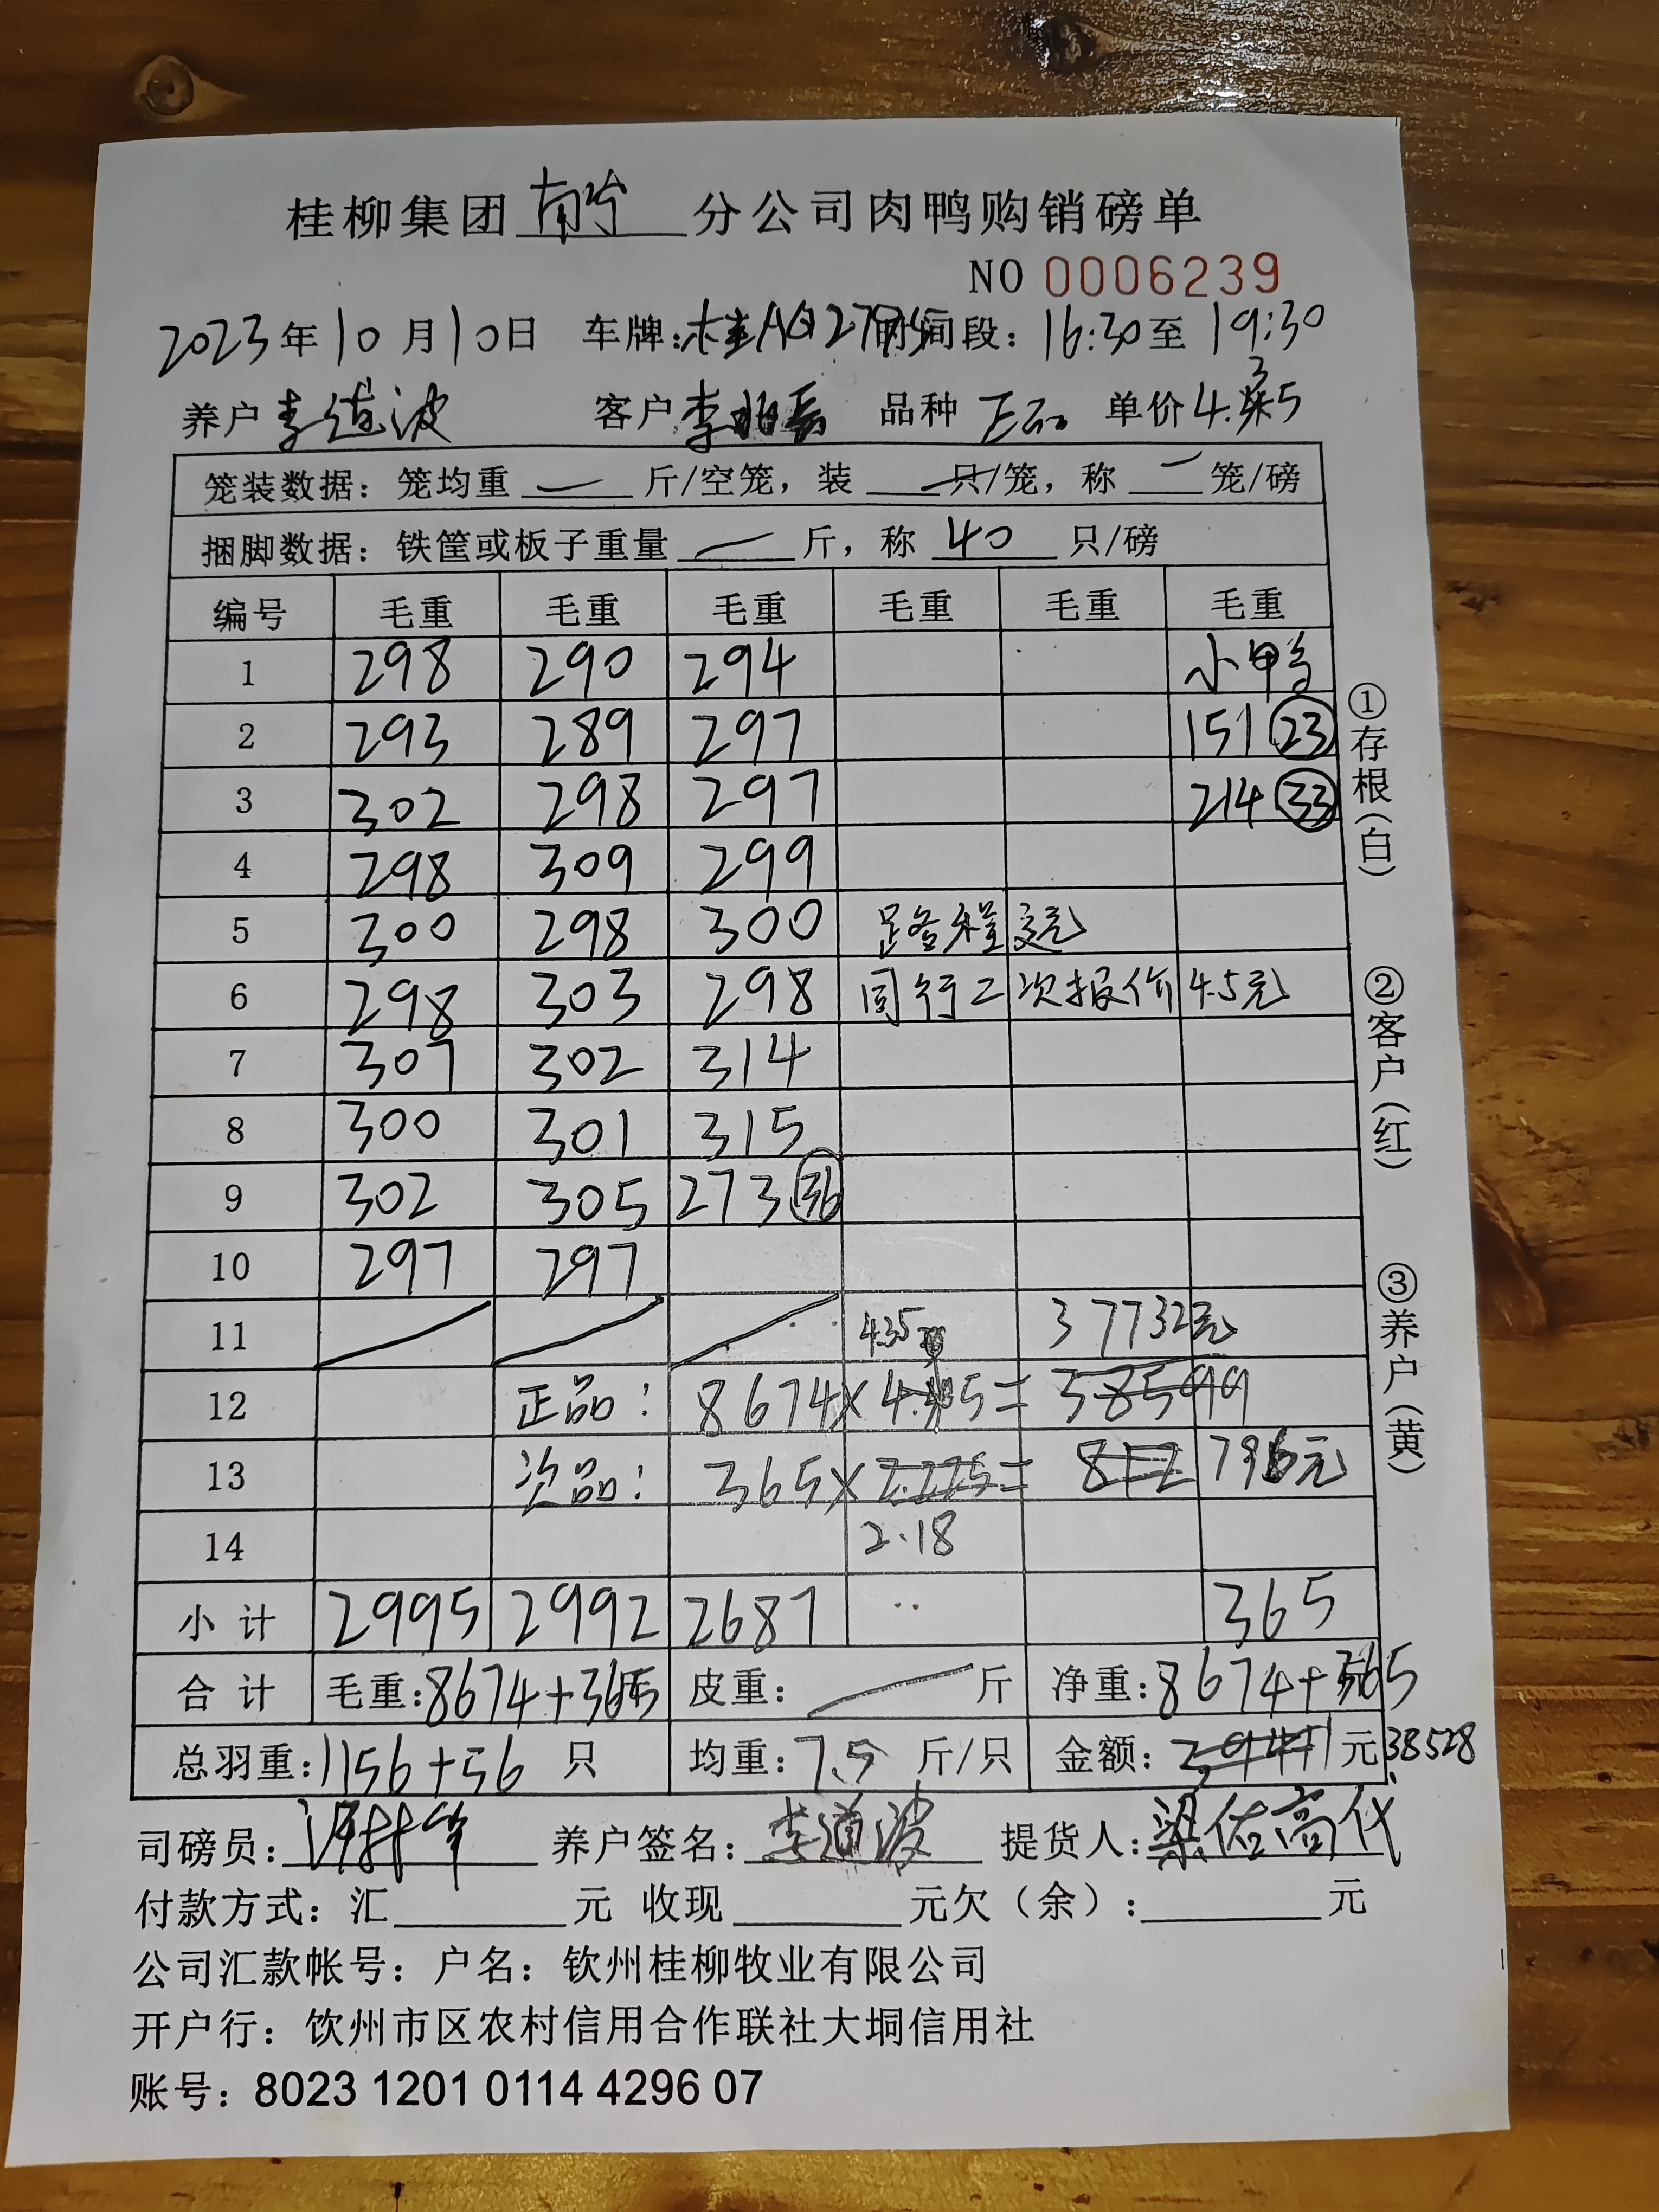 桂柳集团南宁分公司肉鸭购销磅单
NO 0006239
2023年10月10日 车牌: 桂A 时间段: 16:30至19:30
养户 李道波 客户 李 品种 正品 单价 4.35
笼装数据: 笼均重 — 斤/空笼, 装 — 只/笼, 称 — 笼/磅
捆脚数据: 铁筐或板子重量 — 斤, 称 40 只/磅
编号 毛重 毛重 毛重 毛重 毛重 毛重
1 298 290 294 小鸭
2 293 289 297 151 23
3 302 298 297 214 33
4 298 309 299
5 300 298 300 路程
6 298 303 298 同行二次报价 4.5元
7 307 302 314
8 300 301 315
9 302 305 273 36
10 297 297
11 4.35 37732元
12 正品: 8674×4.45=38599
13 次品: 365×2.225=812 796元
14 2.18
小计 2995 2992 2687 365
合计 毛重:8674+365 皮重: — 斤 净重:8674+365
总羽重:1156+56 只 均重:7.5 斤/只 金额: 39411元 38528
司磅员: 养户签名: 李道波 提货人: 梁佑高代
付款方式: 汇 元 收现 元欠(余): 元
公司汇款帐号: 户名: 钦州桂柳牧业有限公司
开户行: 钦州市区农村信用合作联社大垌信用社
账号: 8023 1201 0114 4296 07
①存根(白)
②客户(红)
③养户(黄)